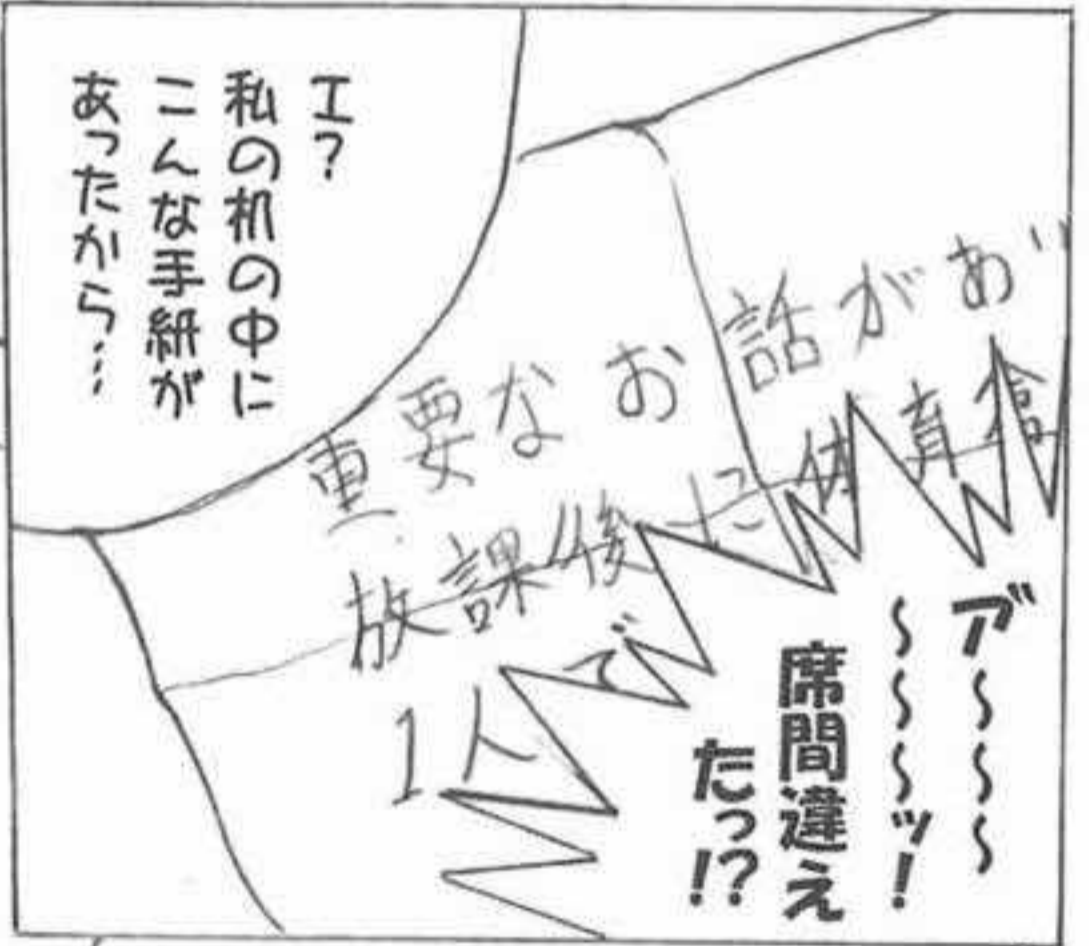 エ?
私の机の中に
こんな手紙が
あったから…
重要なお話があり
放課後に体育館
1人で
ア゛〜〜〜〜
〜〜〜〜ッ!
席間違え
たっ!?